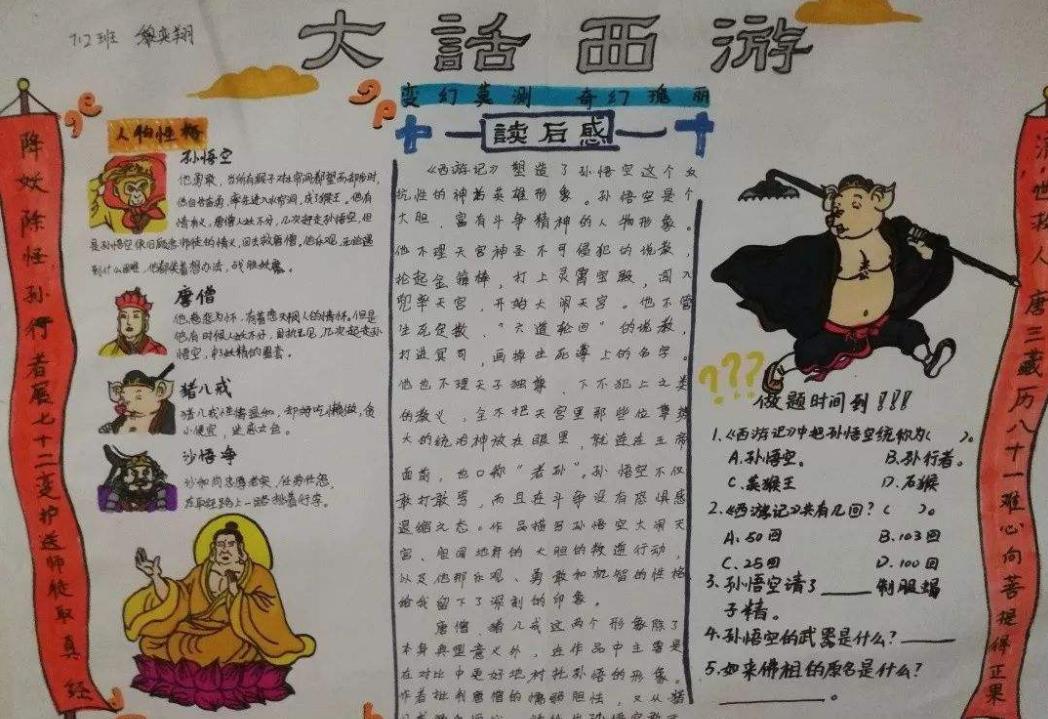 712班
大話西游
变幻莫测 奇幻瑰丽
降妖除怪孙行者展七十二变护送师徒取真经
人物性格
孙悟空
他勇敢，当所有猴子对水帘洞都望而却步时，
他自告奋勇，率先进入水帘洞，成了猴王。他有
情有义，唐僧人妖不分，几次赶走孙悟空，但
是孙悟空依旧顾念师徒的情义，回去救唐僧，他乐观，无论遇
到什么困难，他都笑着想办法，战胜妖魔。
唐僧
他慈悲为怀，有着悲天悯人的情怀。但是
他有时候人妖不分，固执己见，几次赶走孙
悟空，
猪八戒
猪八戒性情温和，却好吃懒做，贪
小便宜，
沙悟净
沙和尚忠厚老实，任劳任怨，
在取经路上一路挑着行李。
读后感
《西游记》塑造了孙悟空这个反
抗性的神话英雄形象。孙悟空是个
大胆，富有斗争精神的人物形象。
他不理天宫神圣不可侵犯的说教，
抡起金箍棒，打上灵霄宝殿，闯入
兜率天宫，开始大闹天宫。他不管
生死定数、“六道轮回”的说教，
打进冥司，画掉生死簿上的名字。
他也不理天子独尊、下不犯上之类
的教义，全不把天宫里那些位尊势
大的统治神放在眼里，就连在玉帝
面前，也口称“老孙”。孙悟空不仅
敢打敢骂，而且在斗争没有恐惧感
退缩之态。作品描写孙悟空大闹天
宫、
以及他那乐观、勇敢和机智的性格
给我留下了深刻的印象。
唐僧、猪八戒这两个形象除了
本身典型意义外，在作品中主要是
在对比中更好地衬托孙悟的形象。
作者批判唐僧的懦弱胆怯，又从猪
???
做题时间到!!!
1.《西游记》中把孙悟空统称为（ ）。
A.孙悟空。 B.孙行者。
C.美猴王 D.石猴
2.《西游记》共有几回？（ ）。
A.50回 B.103回
C.25回 D.100回
3.孙悟空请了____制服蝎
子精。
4.孙悟空的武器是什么？____
5.如来佛祖的原名是什么？
____。
世救人唐三藏历八十一难心向菩提得正果